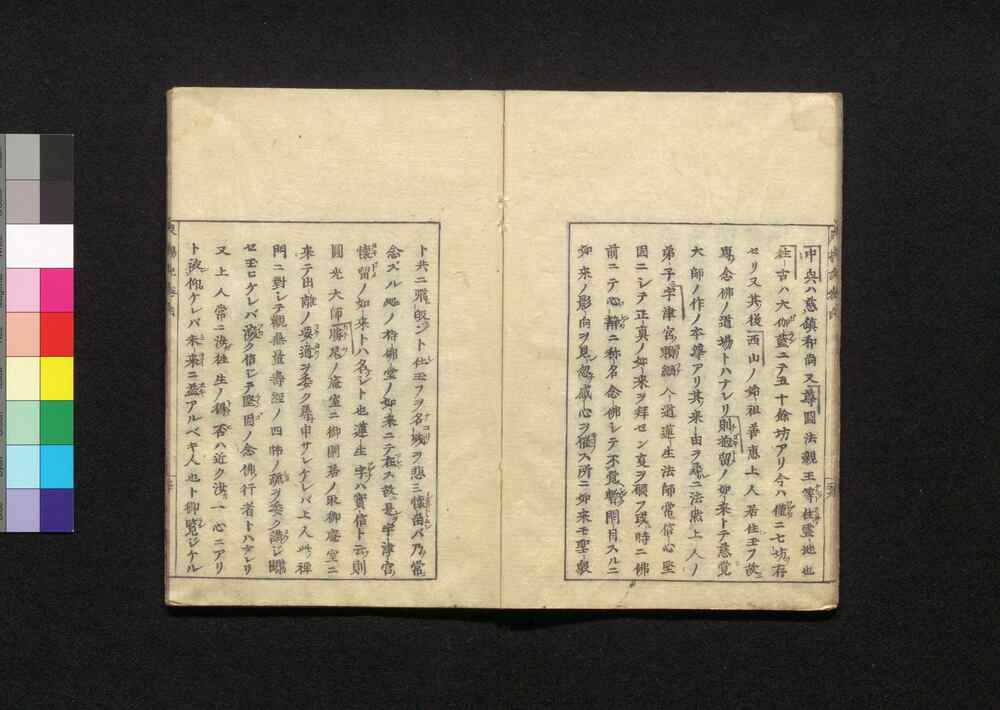 中興ハ慈鎮和尚又尊圓法親王等住霊地也
往古ハ大伽藍ニテ五十餘坊アリ今ハ僅ニ七坊存
セリ又其後西山ノ始祖善惠上人若住玉フ故ニ
專念佛ノ道場トハナレリ則遊留ノ如来トテ慈覚
大師ノ作ノ本尊アリ其来由ヲ尋ニ法然上人ノ
弟子宇津宮頼綱今道蓮生法師常信心堅
固ニシテ正真ノ如来ヲ拜セン亨ヲ願フ或時ニ佛
前ニテ心静ニ称名念佛シテ不覚暫閉目スルニ
如来ノ影向ヲ見忽感心ヲ催ス所ニ如来モ聖衆
ト共ニ飛皈ント仕玉フヲ名残ヲ悲ミ懐留バ乃當
念ズル処ノ持佛堂ノ如来ニテ在ス故是宇津宮
懐留ノ如来トハ名シト也蓮生字ハ實信ト云則
圓光大師勝尾ノ庵室ニ御閑若ノ砌御庵室ニ
来テ出離ノ要道ヲ委ク尋申サレケレバ上人此禅
門ニ對シテ觀無量壽經ノ四帖ノ疏ヲ委ク講ジ畷
セ玉ヒケレバ深ク信シテ堅固ノ念佛行者トハナレリ
又上人常ニ汝往生ノ得否ハ近ク汝ガ一心ニアリ
ト被仰ケレバ未来ニ益アルベキ人也ト御覧ジケル